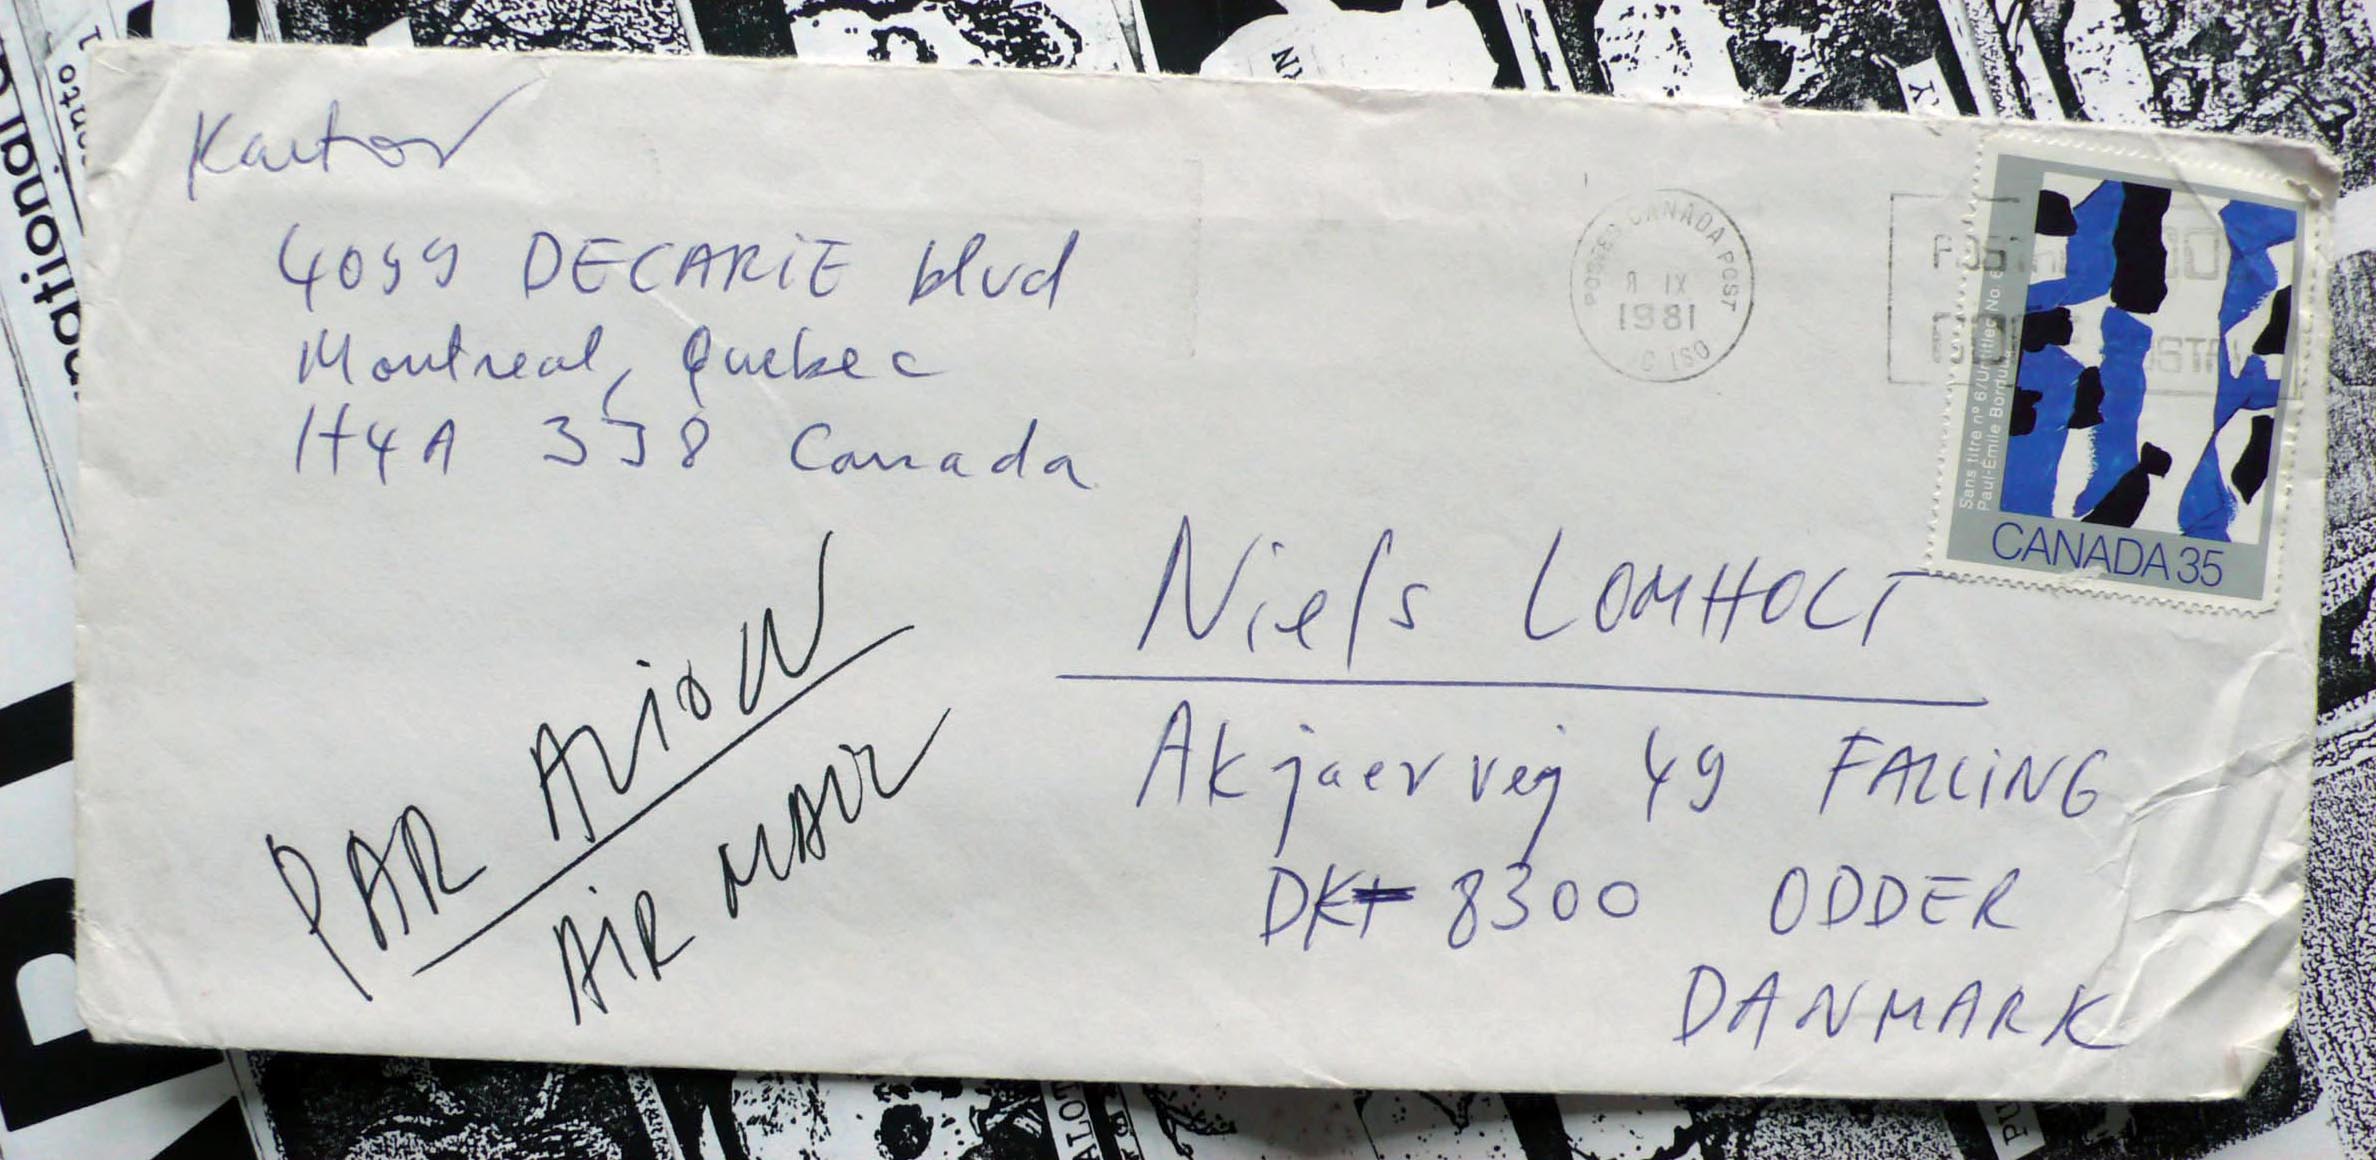 Kantor
4099 DECARIE blvd
Montreal, Quebec
H4A 3J8 Canada
POSTED CANADA POST
IX
1981
Sans titre nº 6/Untitled No. 6
Paul-Émile Borduas
CANADA 35
Niels LOMHOLT
Akjaervej 49 FALLING
DK 8300 ODDER
DANMARK
PAR AVION
AIR MAIL
national